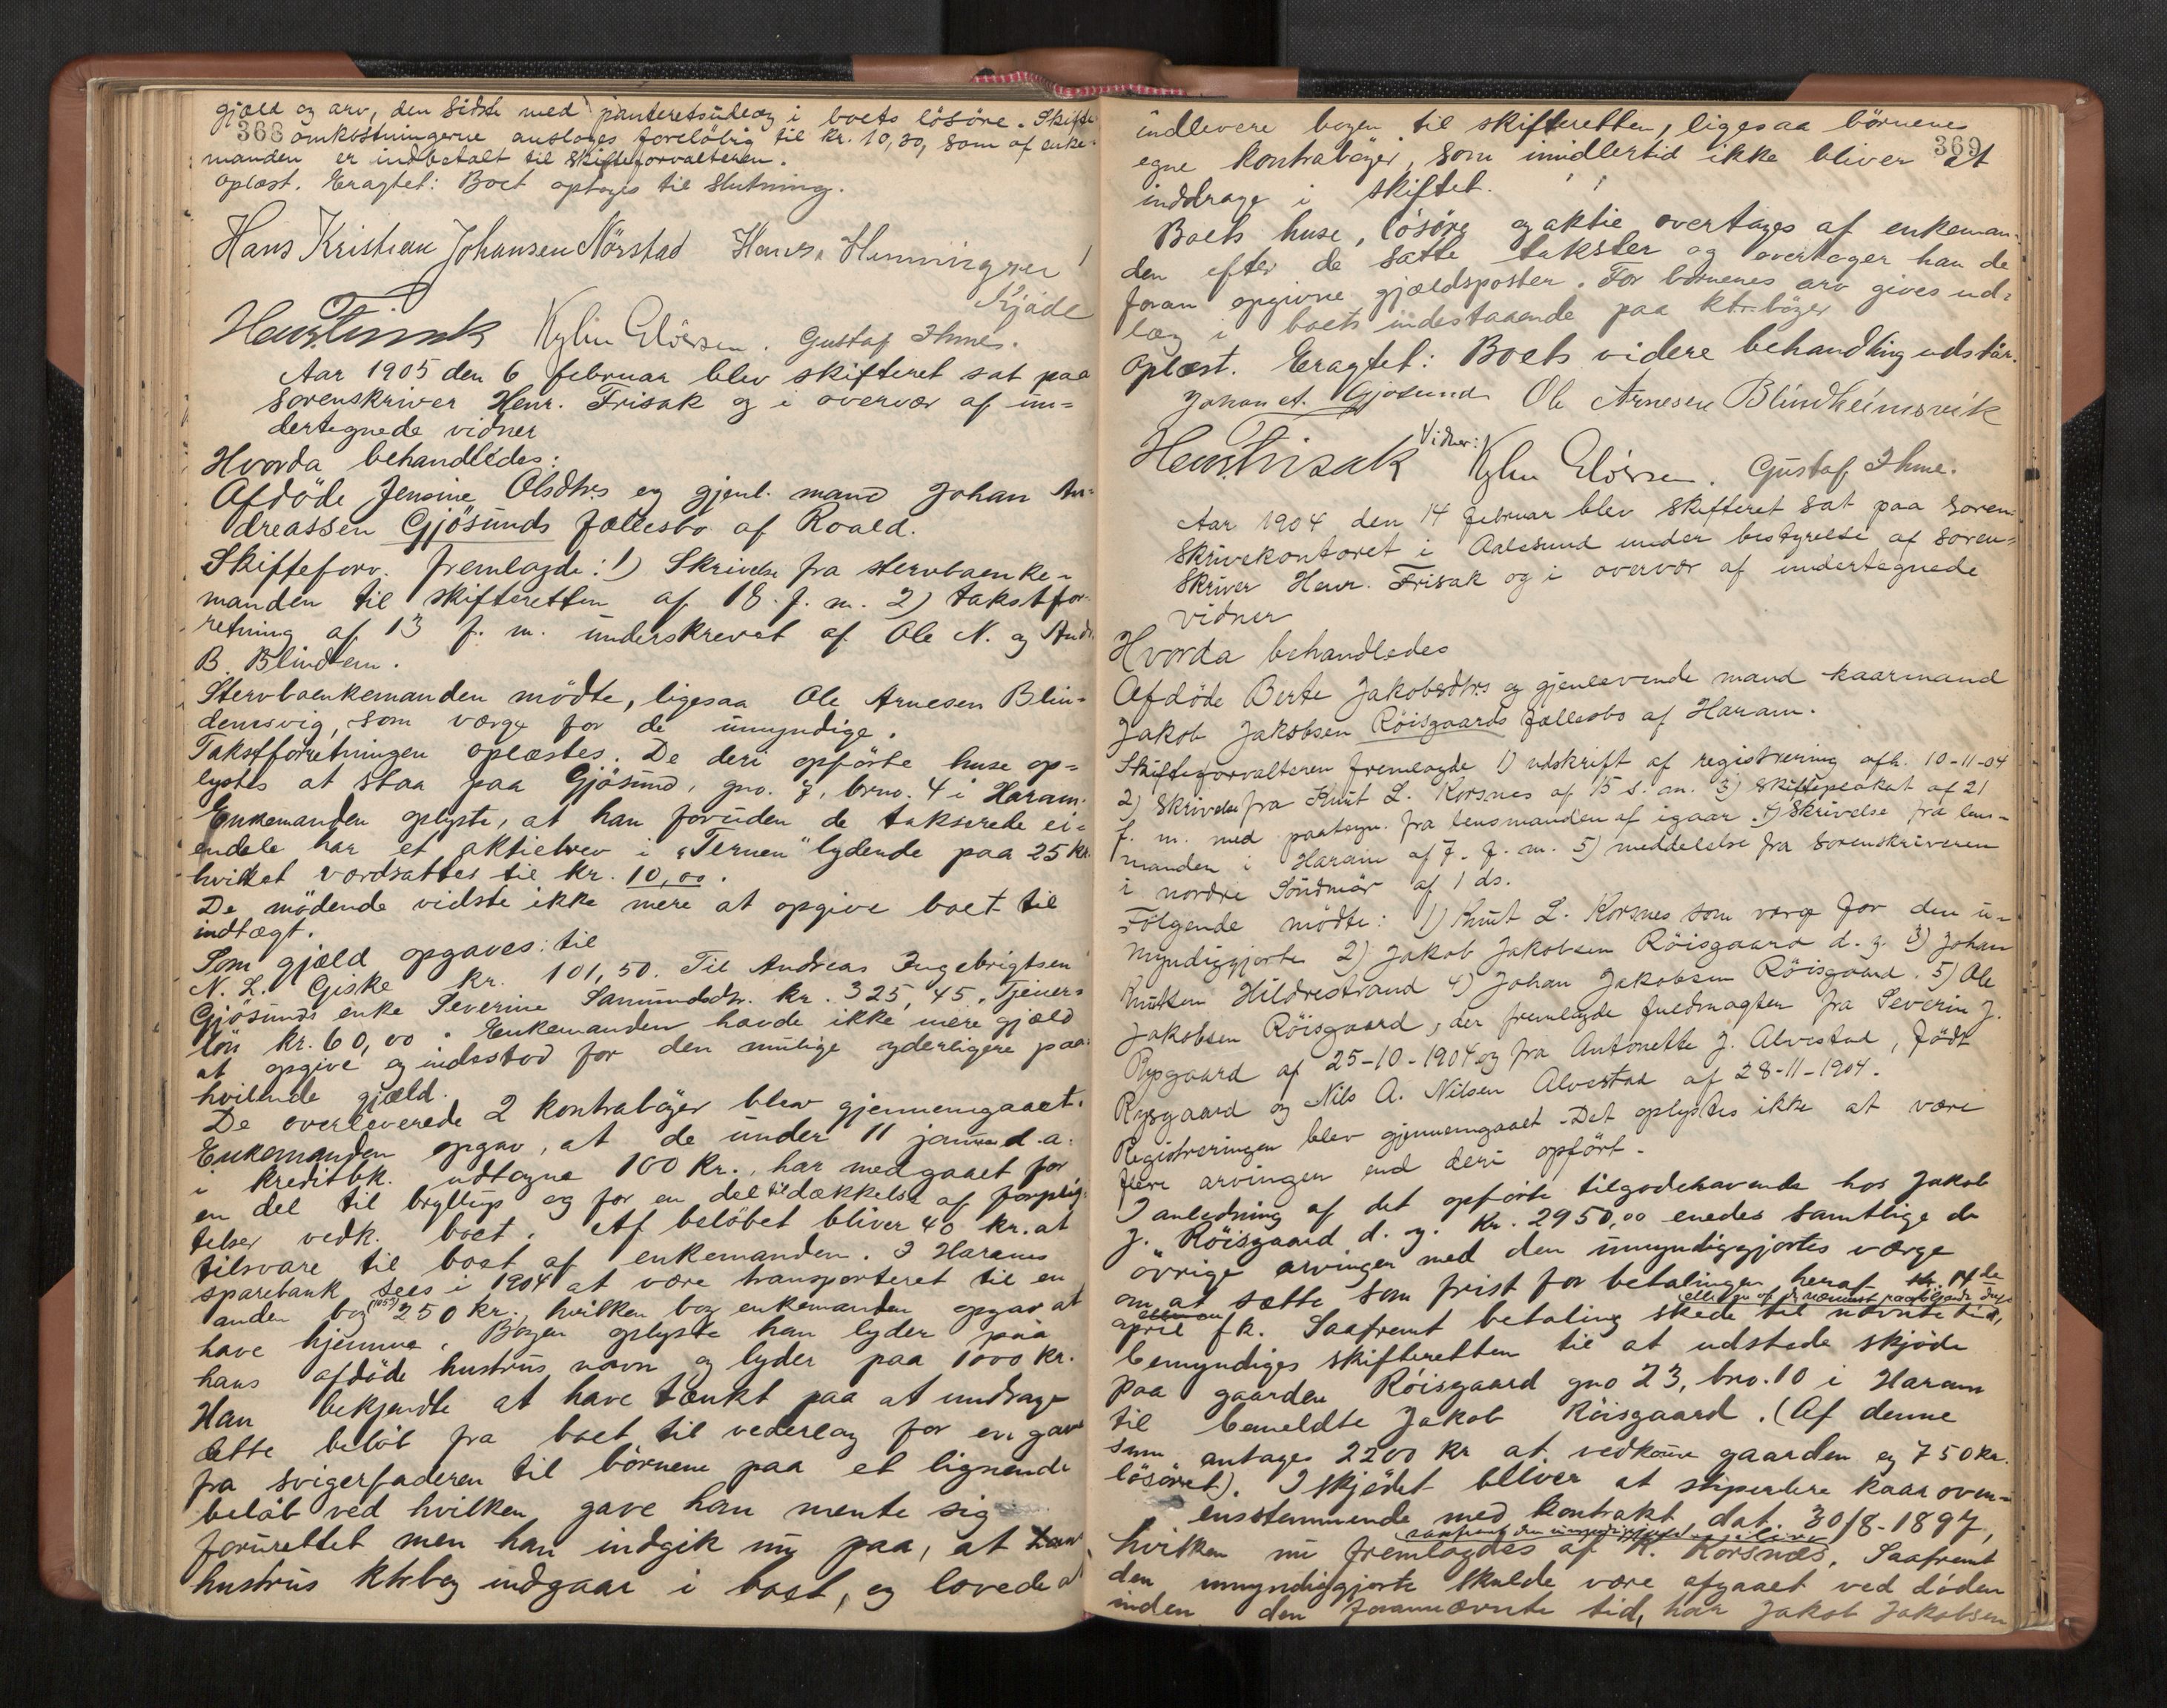 gjæld og arv, den sidste med panteretsudlæg i boets lösöre. Skifte-
368 omkostningerne ansloges foreløbig til kr. 10,30, som af enke-
manden er indbetalt til skifteforvalteren.
Oplæst. Eragtet: Boet optages til slutning.
Hans Kristian Johansen Nörstad Hans Henningsen
Kjöde
Henr. Frisak Gustaf Ihme.
Aar 1905 den 6 februar blev skifteret sat paa
sorenskriver Henr. Frisak og i overvær af un-
dertegnede vidner
Hvorda behandledes:
Afdöde Jensine Olsdtrs og gjenl. mand Johan An-
dreassen Gjösunds fællesbo af Roald.
Skifteforv. fremlagde: 1) Skrivelse fra stervboenke-
manden til skifteretten af 18. f. m. 2) takstfor-
retning af 13 f. m. underskrevet af Ole N. og Andr.
B. Blindem.
Stervboenkemanden mödte, ligesaa Ole Arnesen Blin-
demsvig, som værge for de umyndige.
Takstforretningen oplæstes. De deri opförte huse op-
lystes at staa paa Gjösund, gno. 7, brno. 4 i Haram.
Enkemanden oplyste, at han foruden de takserede ei-
endele har et aktiebrev i "Ternen" lydende paa 25 kr.
hvilket værdsattes til kr. 10,00.
De mödende vidste ikke mere at opgive boet til
indtægt.
Som gjæld opgaves: til
N. L. Giske kr. 101,50. Til Andreas Ingebrigtsen
Gjösunds enke Severine Samundsdtr. kr. 325,45. Tjener-
lön kr. 60,00. Enkemanden havde ikke mere gjæld
at opgive og indestod for den mulige yderligere paa-
hvilende gjæld.
De overleverede 2 kontrabøger blev gjennemgaaet.
Enkemanden opgav, at de under 11 januar d. a.
i kreditbk. udtagne 100 kr., har medgaaet for
en del til bryllup og for en del til dækkelse af forplig-
telser vedk. boet. Af belöbet bliver 40 kr. at
tilsvare til boet af enkemanden. I Harams
sparebank sees i 1904 at være transporteret til en
anden bog (1053) 250 kr., hvilken bog enkemanden opgav at
have hjemme. Bogen oplyste han lyder paa
hans afdöde hustrus navn og lyder paa 1000 kr.
Han bekjendte at have tænkt paa at unddrage
dette belöb fra boet til vederlag for en gave
fra svigerfaderen til börnene paa et lignende
belöb ved hvilken gave han mente sig
forurettet men han indgik nu paa, at
hustrus ktrbog indgaar i boet, og lovede at
indlevere bogen til skifteretten, ligesaa börnenes
369
egne kontrabøger, som imidlertid ikke bliver at
inddrage i skiftet.
Boets huse, lösöre og aktie overtages af enkeman-
den efter de satte takster og overtager han de
foran opgivne gjældsposter. For börnenes arv gives ud-
læg i boets indestaaende paa ktrbøger
Oplæst. Eragtet: Boets videre behandling udstår.
Johan A. Gjøsund Ole Arnesen Blindheimsvik
Vidner:
Henr. Frisak Gustaf Ihme.
Aar 1904 den 14 februar blev skifteret sat paa soren-
skrivekontoret i Aalesund under bestyrelse af soren-
skriver Henr. Frisak og i overvær af undertegnede
vidner
Hvorda behandledes
Afdöde Berte Jakobsdtrs og gjenlevende mand kaarmand
Jakob Jakobsen Röisgaards fællesbo af Haram.
Skifteforvalteren fremlagde 1) udskrift af registrering afh. 10-11-04
2) skrivelse fra Knut L. Korsnes af 15 s. m. 3) skifteplakat af 21
f. m. med paategn. fra lensmanden af igaar. 4) Skrivelse fra lens-
manden i Haram af 7. f. m. 5) meddelelse fra sorenskriveren
i nordre Söndmör af 1 ds.
Fölgende mödte: 1) Knut L. Korsnes som værge for den u-
myndiggjorte 2) Jakob Jakobsen Röisgaard d. y. 3) Johan
Knutsen Hildrestrand 4) Johan Jakobsen Röisgaard. 5) Ole
Jakobsen Röisgaard, der fremlagde fuldmagter fra Severin J.
Rysgaard af 25-10-1904 og fra Antonette J. Alvestad, födt
Rysgaard og Nils A. Nilsen Alvestad af 28-11-1904.
Registreringen blev gjennemgaaet. Det oplystes ikke at være
flere arvinger end deri opfört.
I anledning af det opförte tilgodehavende hos Jakob
J. Röisgaard d. y. kr. 2950,00 enedes samtlige de
övrige arvinger med den umyndiggjortes værge
om at sætte som frist for betalingen heraf 14de
april fk. Saafremt betaling skede til nævnte tid,
bemyndiges skifteretten til at udstede skjöde
paa gaarden Röisgaard gno 23, bno. 10 i Haram
til bemeldte Jakob Röisgaard. (Af denne
sum antages 2200 kr at vedkomme gaarden og 750 kr.
lösöret). I skjödet bliver at stipulere kaar oven-
ensstemmende med kontrakt, dat. 30/8-1897,
hvilken nu fremlagdes af K. Korsnæs. Saafremt
den umyndiggjorte skulde være afgaaet ved döden
inden den forannævnte tid, har Jakob Jakobsen